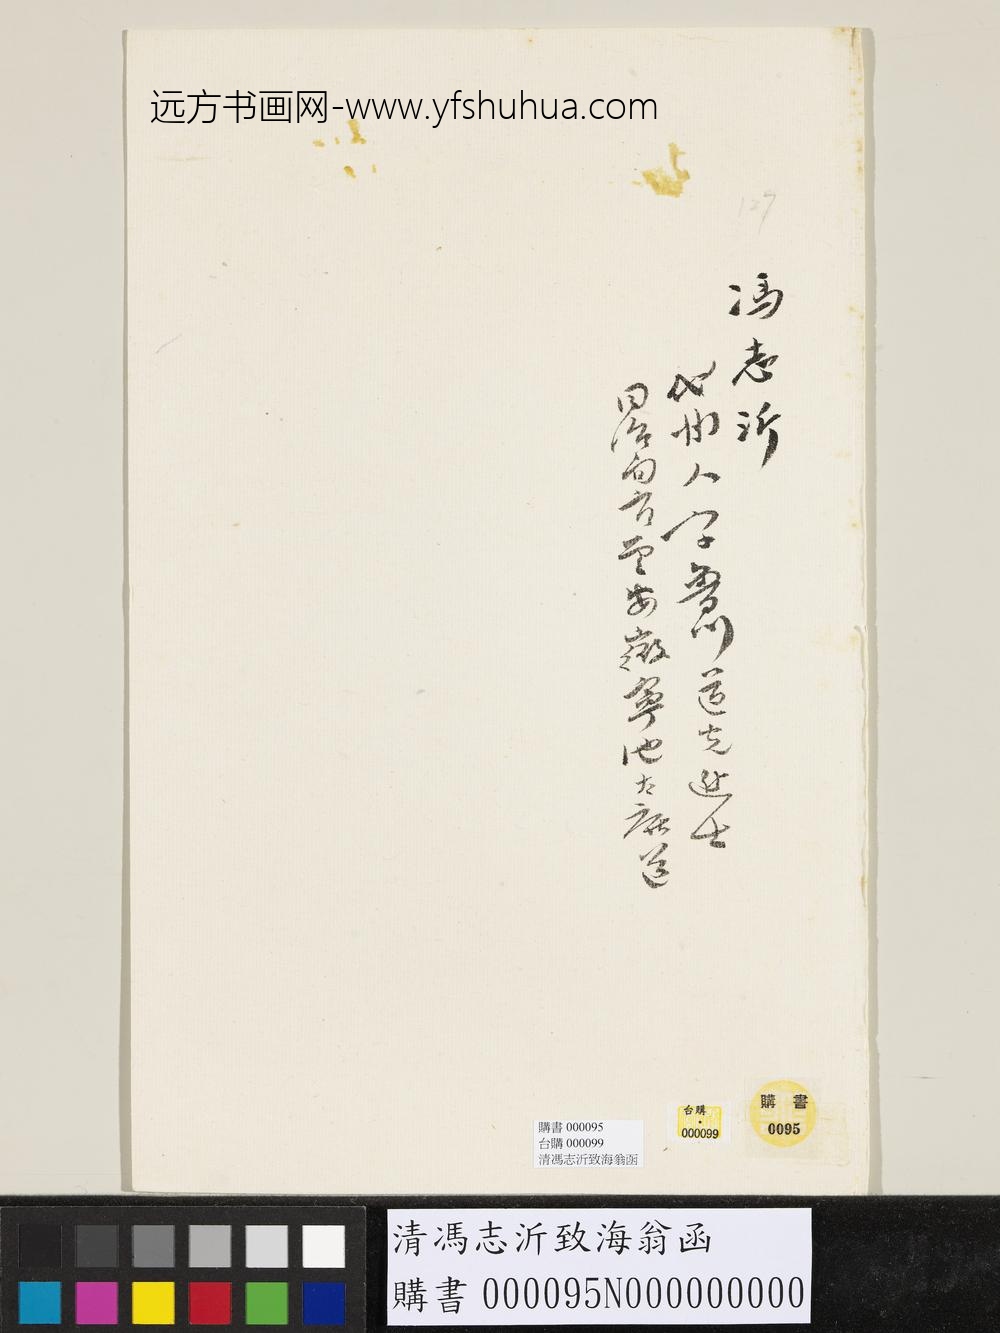 远方书画网-www.yfshuhua.com
127
馮志沂
代州人字魯川道光進士
同治间官至安徽寧池太廣道
購書 000095
台購 000099
清馮志沂致海翁函
台購
000099
購書
0095
清馮志沂致海翁函
購書 000095N000000000